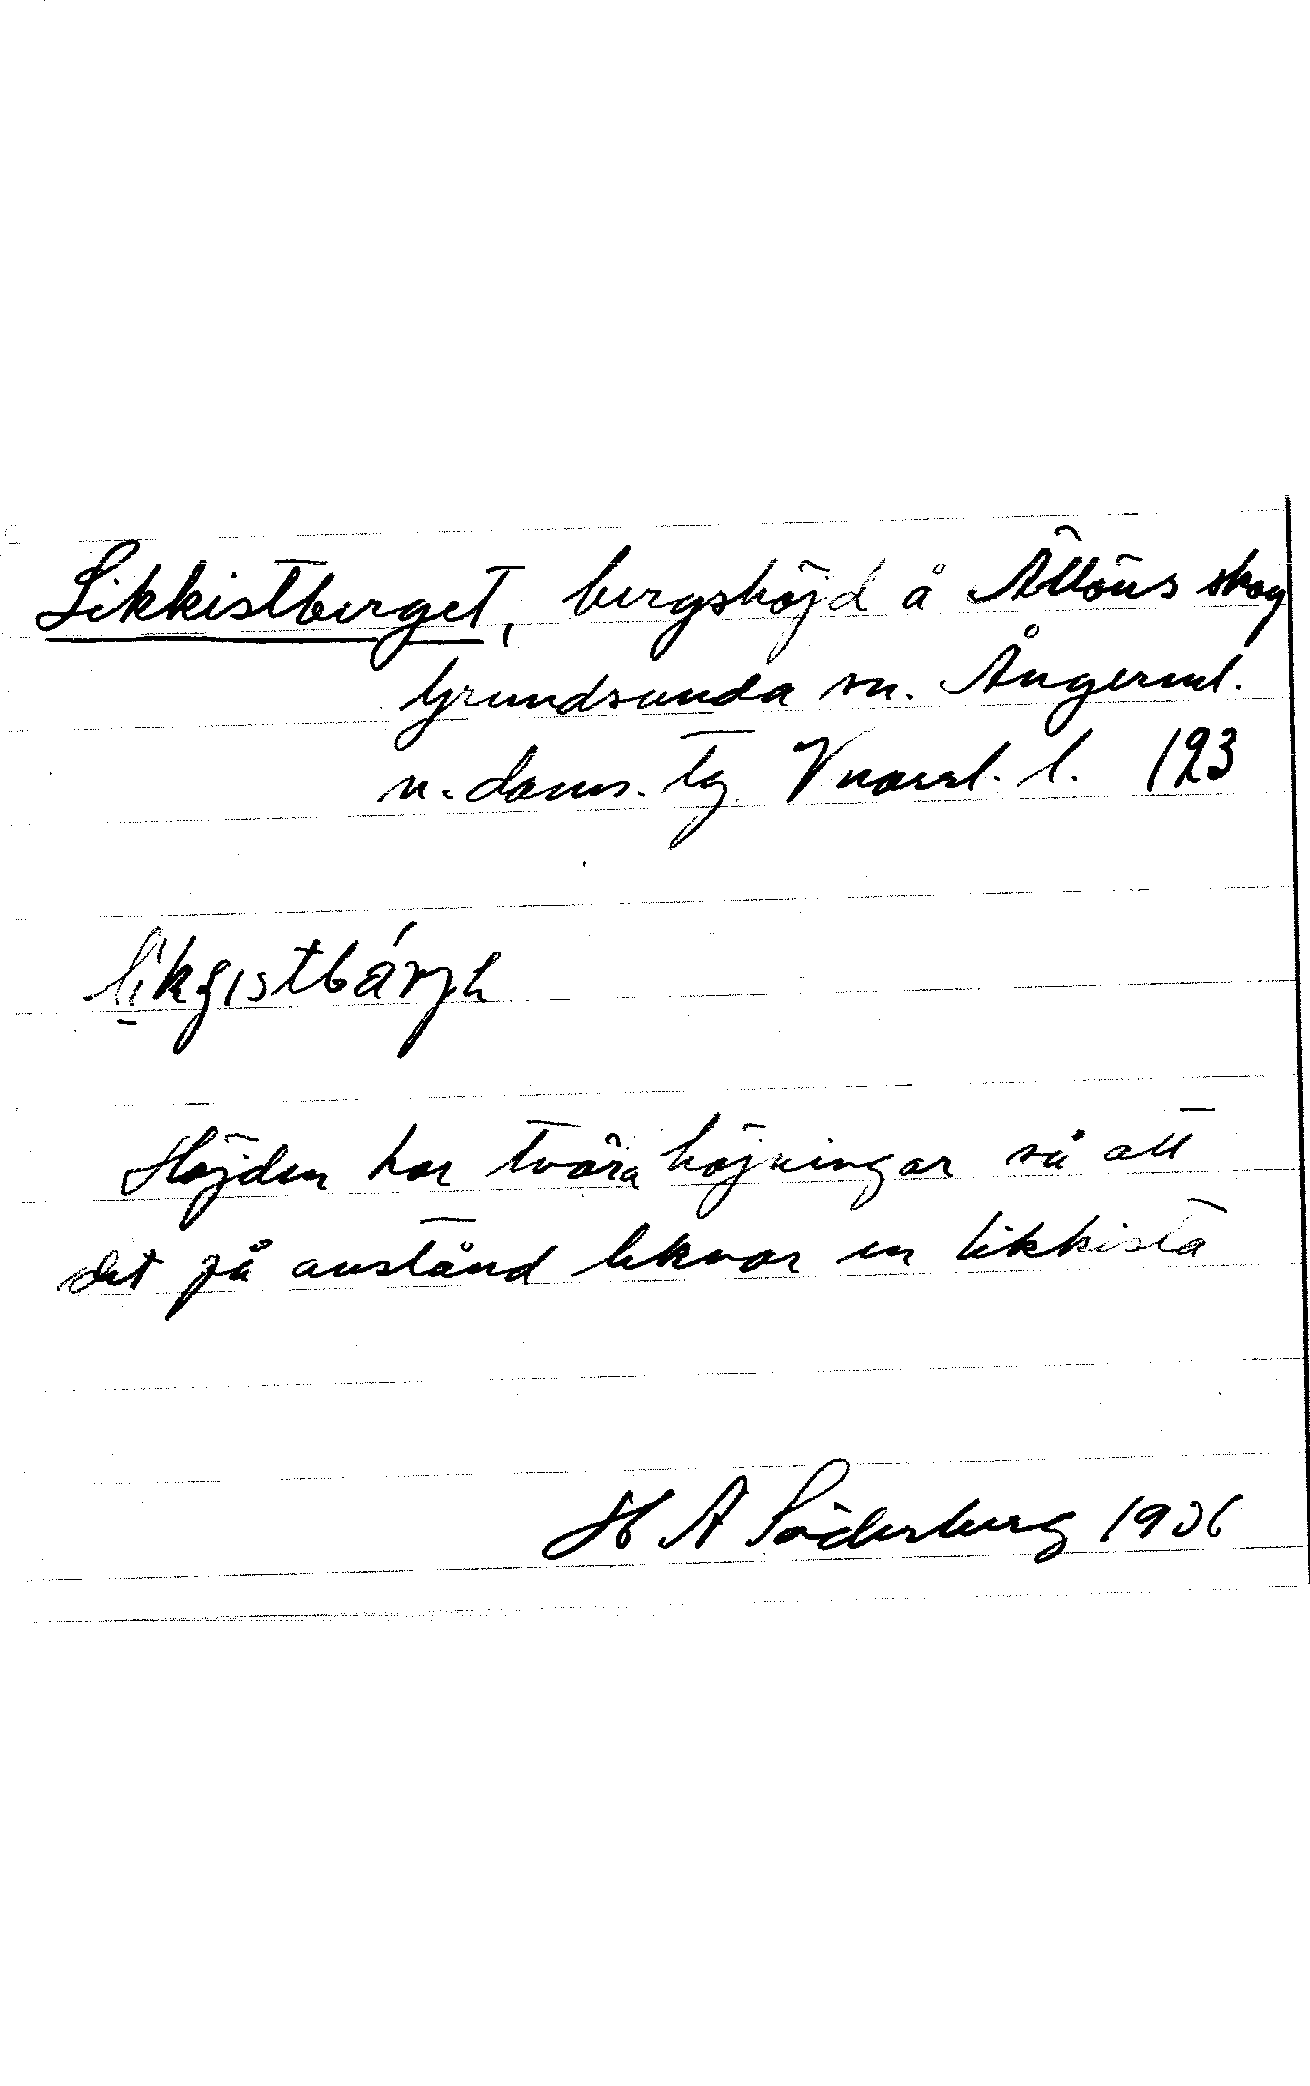 Likkistberget, bergshöjd å Ällöns skog
Grundsunda sn. Ångerml.
n. doms. tg V norrl. l. 123
Höjden har tvära höjningar så att
det på avstånd liknar en likkista
H A Söderberg 1936